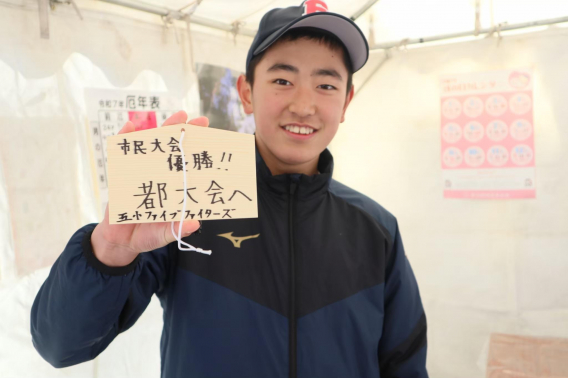 市民大会
優勝!!
都大会へ
五小ファイブファイターズ
令和7年 厄年表